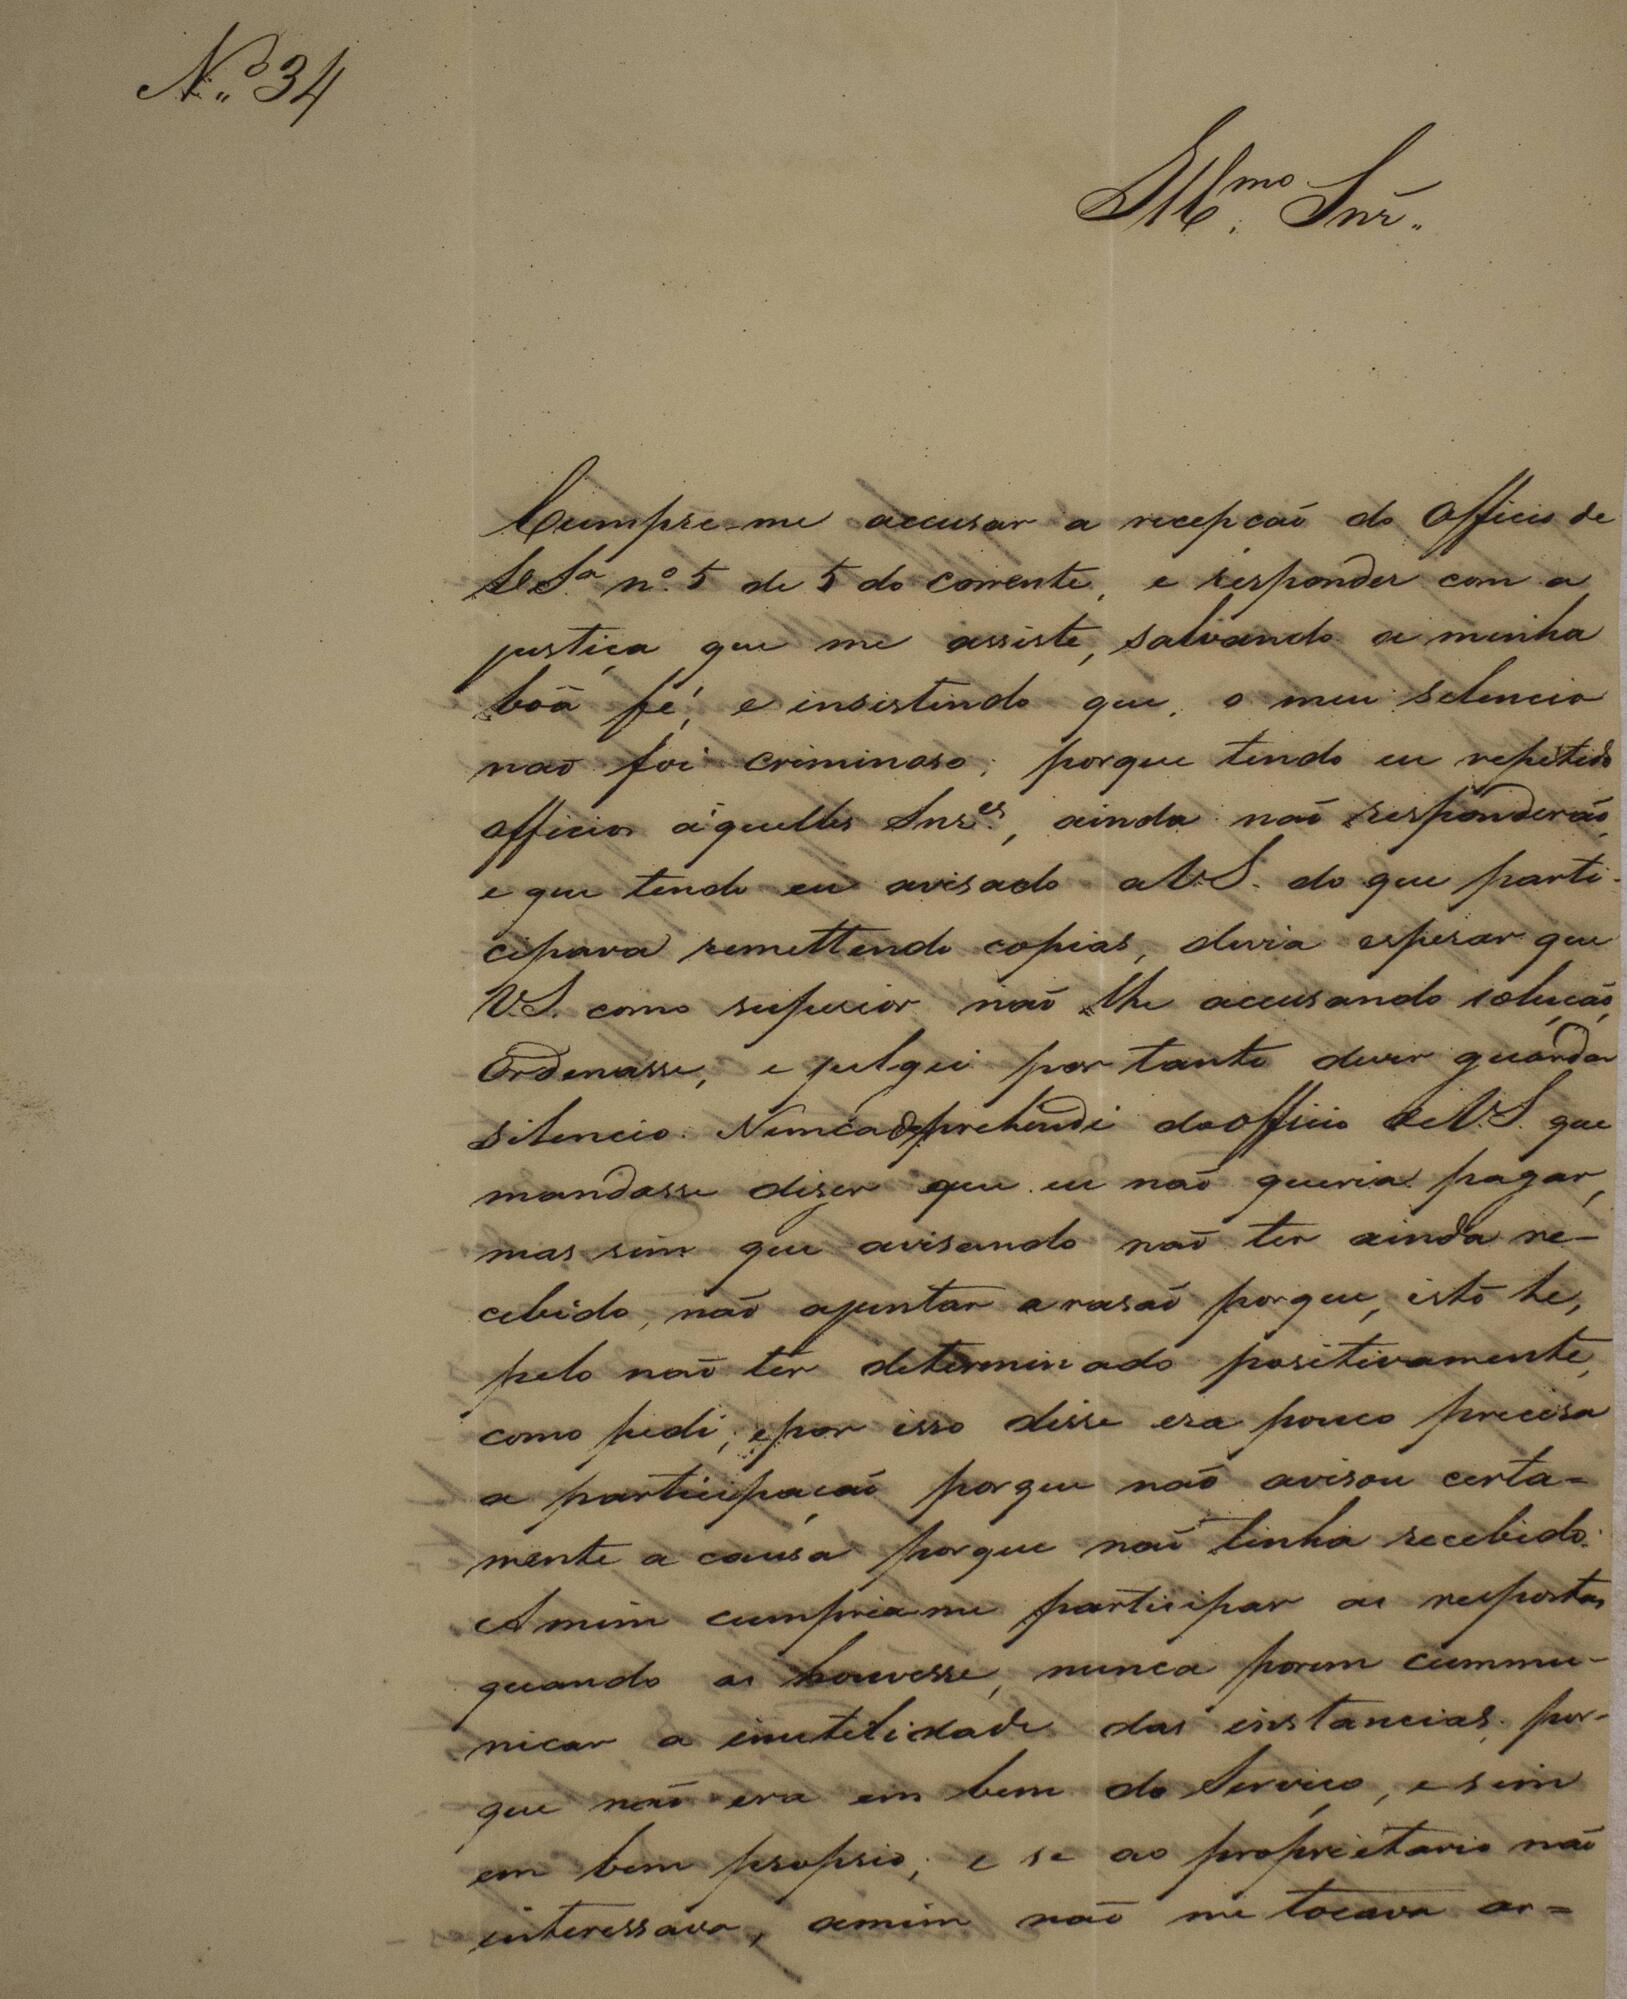 N.º 34
Ill.mo Snr.
Cumpre-me accusar a recepcaõ do Officio de
V.S.ª nº 5 de 5 do corrente, e responder com a
justiça que me assiste, salvando a minha
bôa fé, e insistindo que, o meu selencio
naõ foi criminoso, porque tendo eu repetido
officios áquelles Snr.es, ainda naõ responderaõ,
e que tendo eu avisado a V.S. do que parti-
cipava remettendo copias, devia esperar que
V.S. como superior naõ lhe accusando soluçaõ,
Ordenasse, e julguei por tanto dever guardar
silencio. Nunca deprehendi do Officio de V.S. que
mandasse diser que eu naõ queria pagar,
mas sim que avisando naõ ter ainda re-
cebido, naõ ajuntar a rasaõ porque, isto he,
pelo naõ ter determinado positivamente,
como pedi, e por isso disse era pouco precisa
a participaçaõ porque naõ avisou certa-
mente a causa porque naõ tinha recebido.
A mim cumpria-me participar as respostas
quando as houvesse, nunca porem cummu-
nicar a inutelidade das instancias, por-
que naõ era em bem do Serviço, e sim
em bem proprio; e se ao proprietario naõ
interessava, amim naõ me tocava ar-